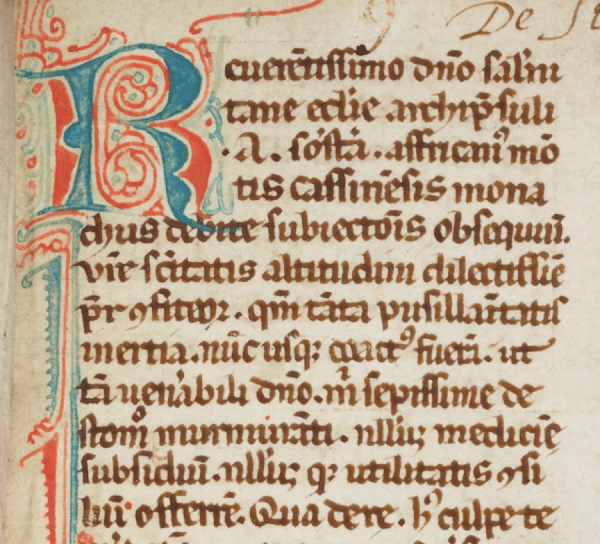 De St
Reuerẽtissimo dño salnı
tane eccl̃ie archip̃suli
·A· Cõstã· affricanꝰ mõ
tis cassinẽsis mona
chus debite subiectõis obsequiũ.
vr̃e sc̃itatis altitudini dilectissĩe
pr̃ ꝯfiteor· qm̃ tãta pusillãitatis
inertia· nũc usqꝫ coactꝰ fuerĩ· ut
tã uenãbili dño· m̃ sepissime de
stom̃o murmurãti· nlliꝰ medicĩe
subsidiũ· nlliꝰ qꝫ utilitatis ꝯsi
liũ offerrẽ. Qua de re. hꝰ culpe te